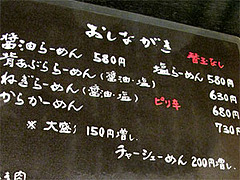 おしながき
替玉なし
醤油らーめん 580円 塩らーめん 580円
背あぶららーめん (醤油・塩) 630円
ねぎらーめん (醤油・塩) 680円
からかーめん ピリ辛 730円
※大盛り 150円増し、
チャーシューめん 200円増し、
肉